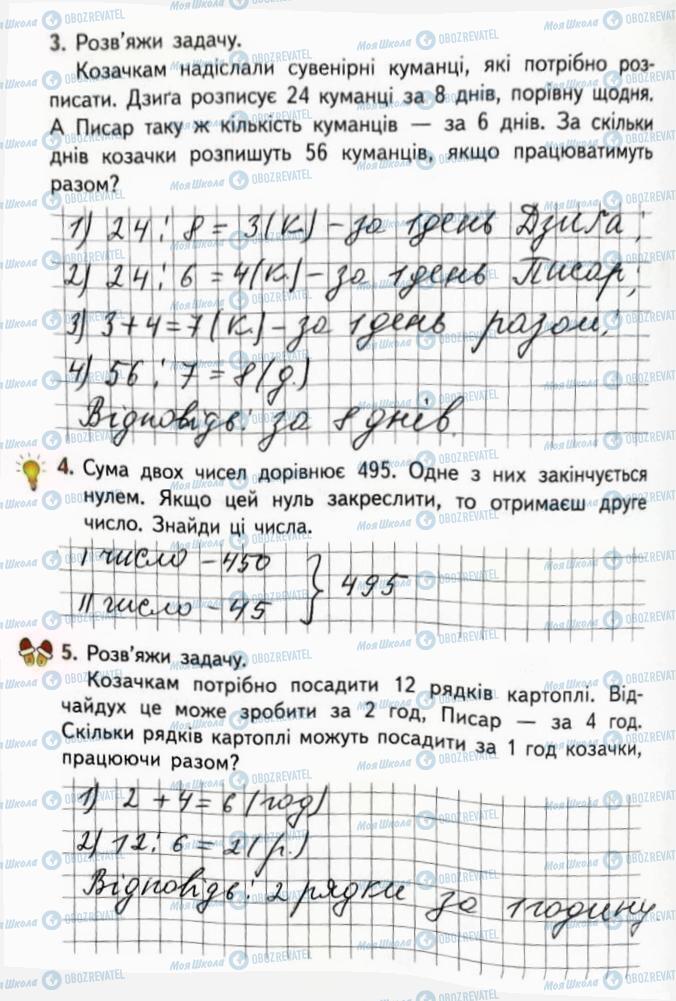 3. Розв'яжи задачу.
Козачкам надіслали сувенірні куманці, які потрібно роз-
писати. Дзиґа розписує 24 куманці за 8 днів, порівну щодня.
А Писар таку ж кількість куманців — за 6 днів. За скільки
днів козачки розпишуть 56 куманців, якщо працюватимуть
разом?
1) 24 : 8 = 3 (к.) – за 1 день Дзиґа;
2) 24 : 6 = 4 (к.) – за 1 день Писар;
3) 3 + 4 = 7 (к.) – за 1 день разом;
4) 56 : 7 = 8 (д.)
Відповідь: за 8 днів.
4. Сума двох чисел дорівнює 495. Одне з них закінчується
нулем. Якщо цей нуль закреслити, то отримаєш друге
число. Знайди ці числа.
I число – 450
II число – 45
} 495
5. Розв'яжи задачу.
Козачкам потрібно посадити 12 рядків картоплі. Від-
чайдух це може зробити за 2 год, Писар — за 4 год.
Скільки рядків картоплі можуть посадити за 1 год козачки,
працюючи разом?
1) 2 + 4 = 6 (год)
2) 12 : 6 = 2 (р.)
Відповідь: 2 рядки за 1 годину.
Моя Школа OBOZREVATEL